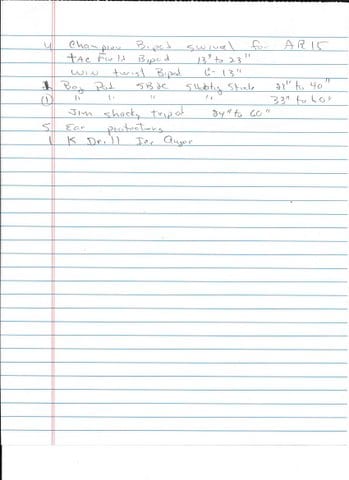 4 Champion Bipod swivel for AR15
TAC Field Bipod 13" to 23"
Win turret Bipod 6-13"
1 Bog Pod SB2C Shooting Stick 21" to 40"
(1) " " " " 33" to 60"
Jim shocky tripod 24" to 60"
5 Ear protectors
1 K Drill Ice Auger